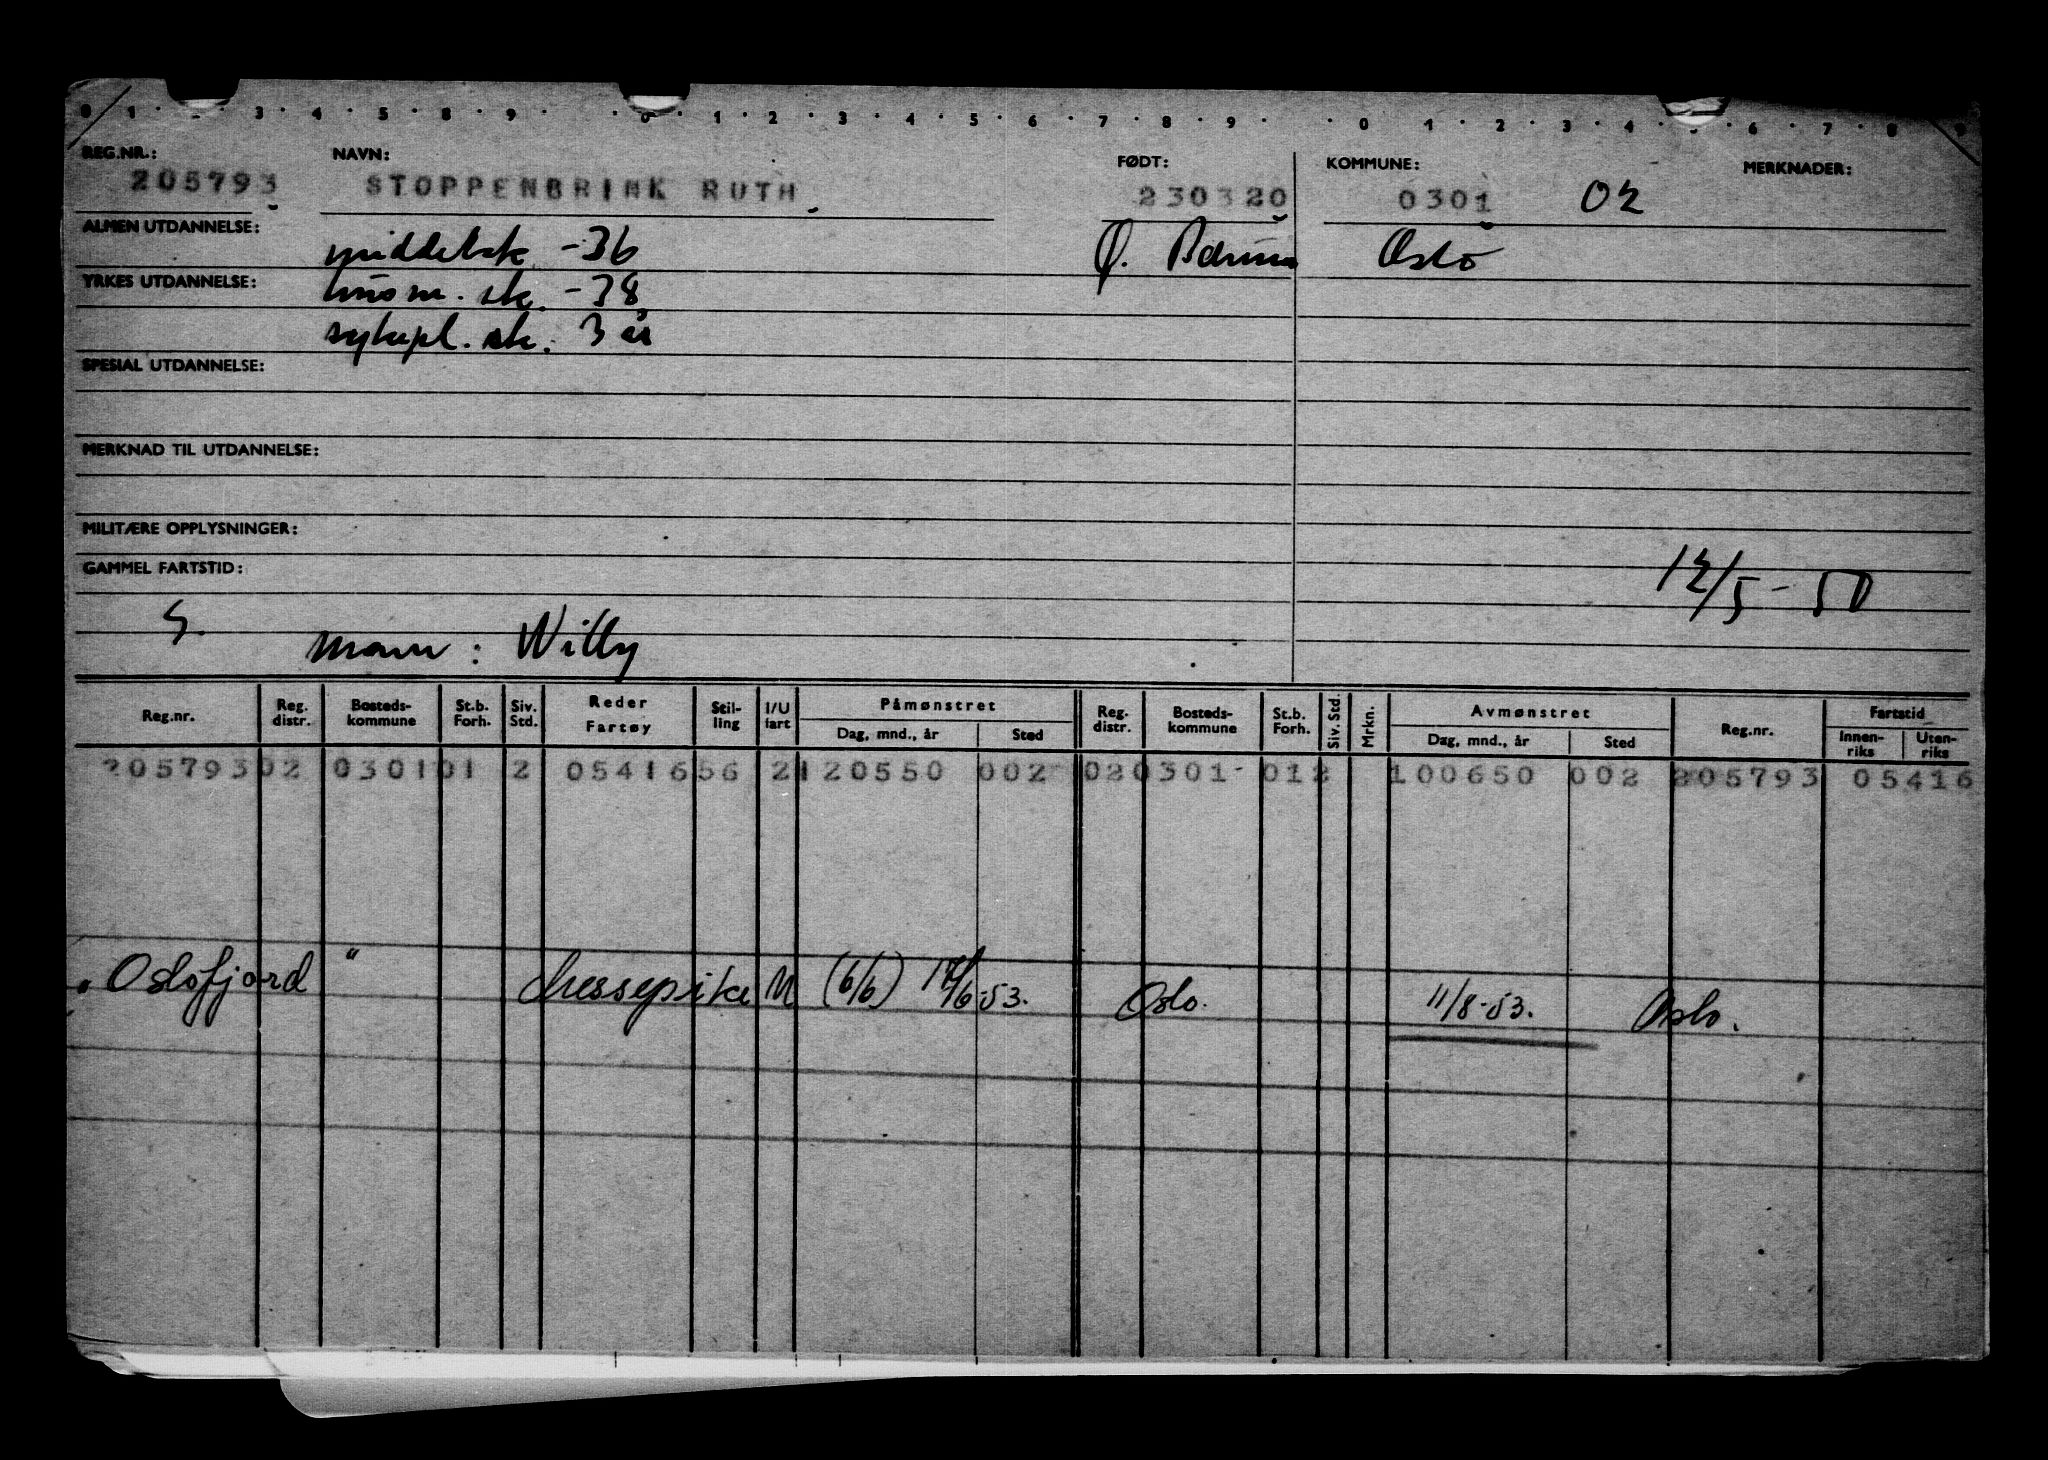 0 1 · · 3 · 4 · 5 · 8 · 9 · · 0 · 1 · 2 · 3 · 4 · 5 · 6 · 7 · 8 · 9 · · 0 · 1 · 2 · 3 · 4 · 5 · 6 · 7 · 8 · 9
REG.NR.: NAVN: FØDT: KOMMUNE: MERKNADER:
205793 STOPPENBRINK RUTH 230320 0301 02
ALMEN UTDANNELSE: middelsk -36 Ø. Bærum Oslo
YRKES UTDANNELSE: husm. sk. -38
sykepl. sk. 3 år
SPESIAL UTDANNELSE:
MERKNAD TIL UTDANNELSE:
MILITÆRE OPPLYSNINGER:
GAMMEL FARTSTID: 12/5 - 50
G.
mann : Willy
Reg.nr. Reg. distr. Bosteds-kommune St.b. Forh. Siv. Std. Reder Fartøy Stil-ling I/U fart Påmønstret Dag, mnd., år Sted Reg. distr. Bosteds-kommune St.b. Forh. Siv. Std. Mrkn. Avmønstret Dag, mnd., år Sted Reg.nr. Fartstid Innen-riks Uten-riks
205793 02 0301 01 2 05416 56 2 120550 002 02 0301 01 2 100650 002 205793 05416
"Oslofjord " Messepike U (6/6) 12/6-53. Oslo. 11/8-53. Oslo.